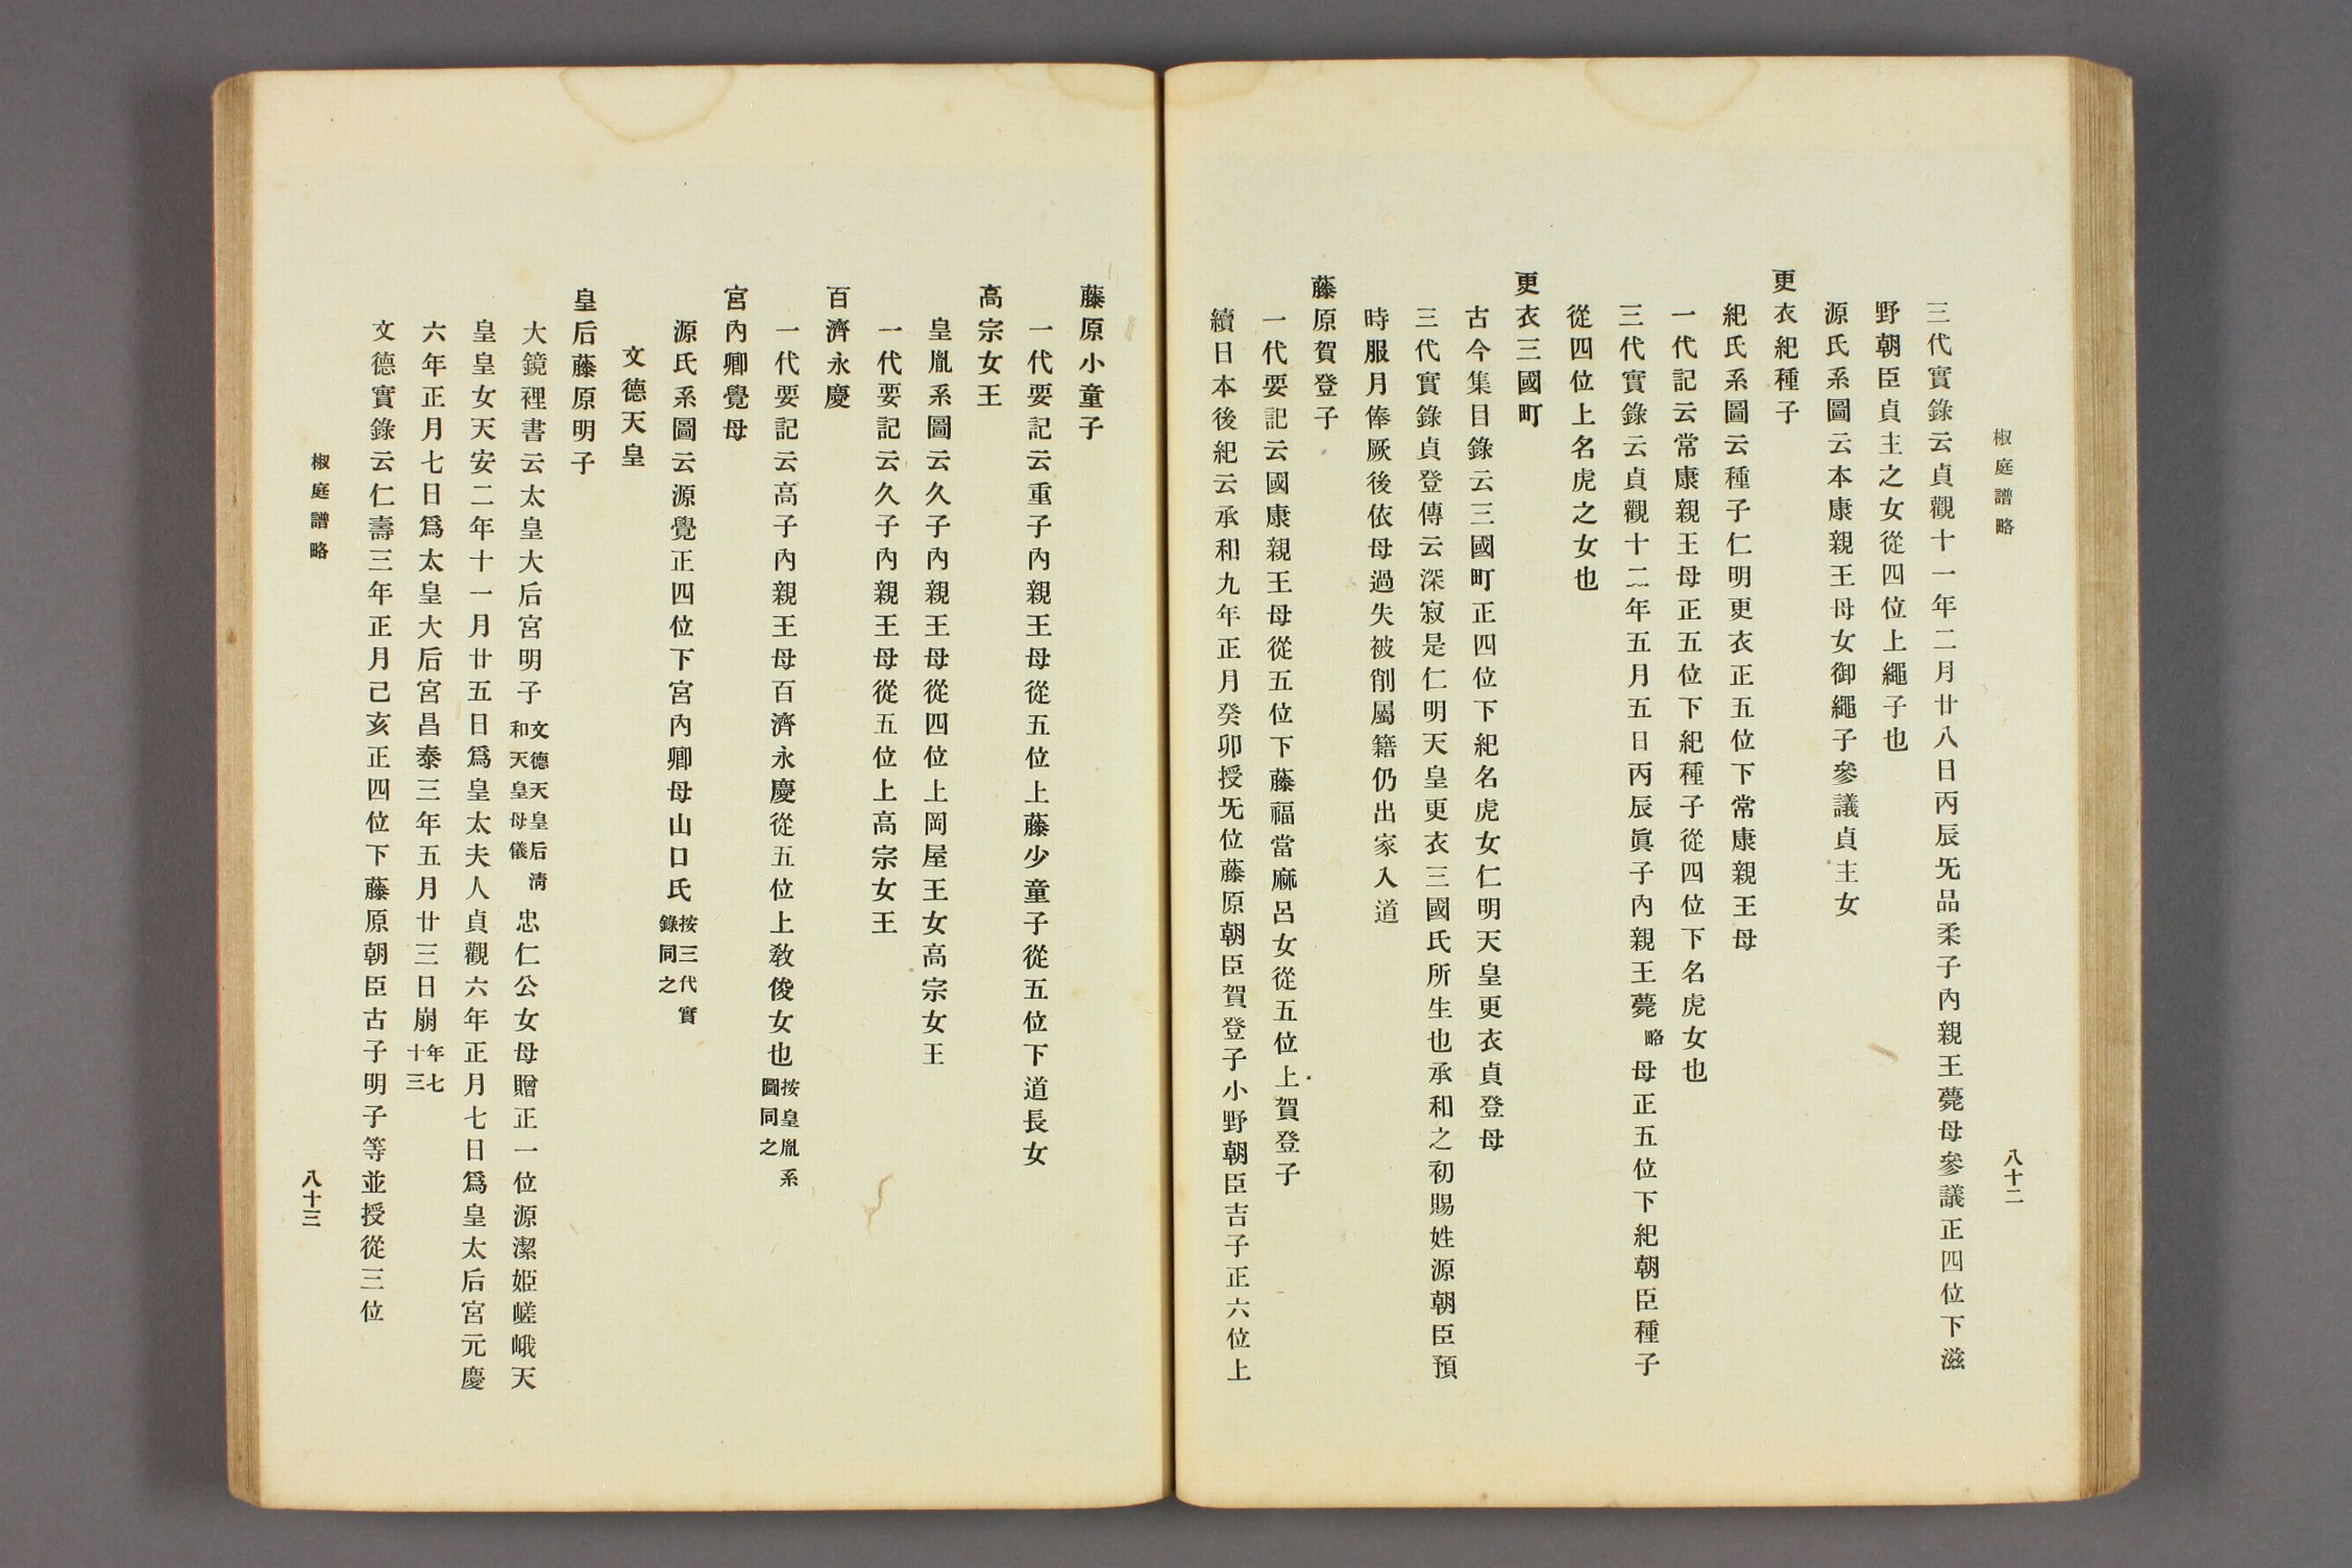 椒庭譜略
八十二
三代實錄云貞觀十一年二月廿八日丙辰旡品柔子內親王薨母參議正四位下滋
野朝臣貞主之女從四位上繩子也
源氏系圖云本康親王母女御繩子參議貞主女
更衣紀種子
紀氏系圖云種子仁明更衣正五位下常康親王母
一代記云常康親王母正五位下紀種子從四位下名虎女也
三代實錄云貞觀十二年五月五日丙辰眞子內親王薨略母正五位下紀朝臣種子
從四位上名虎之女也
更衣三國町
古今集目錄云三國町正四位下紀名虎女仁明天皇更衣貞登母
三代實錄貞登傳云深寂是仁明天皇更衣三國氏所生也承和之初賜姓源朝臣預
時服月俸厥後依母過失被削屬籍仍出家入道
藤原賀登子
一代要記云國康親王母從五位下藤福當麻呂女從五位上賀登子
續日本後紀云承和九年正月癸卯授旡位藤原朝臣賀登子小野朝臣吉子正六位上
藤原小童子
一代要記云重子內親王母從五位上藤少童子從五位下道長女
高宗女王
皇胤系圖云久子內親王母從四位上岡屋王女高宗女王
一代要記云久子內親王母從五位上高宗女王
百濟永慶
一代要記云高子內親王母百濟永慶從五位上敎俊女也按皇胤系圖同之
宮內卿覺母
源氏系圖云源覺正四位下宮內卿母山口氏按三代實錄同之
文德天皇
皇后藤原明子
大鏡裡書云太皇大后宮明子文德天皇后淸和天皇母儀忠仁公女母贈正一位源潔姬嵯峨天
皇皇女天安二年十一月廿五日爲皇太夫人貞觀六年正月七日爲皇太后宮元慶
六年正月七日爲太皇大后宮昌泰三年五月廿三日崩年七十三
文德實錄云仁壽三年正月己亥正四位下藤原朝臣古子明子等並授從三位
椒庭譜略
八十三